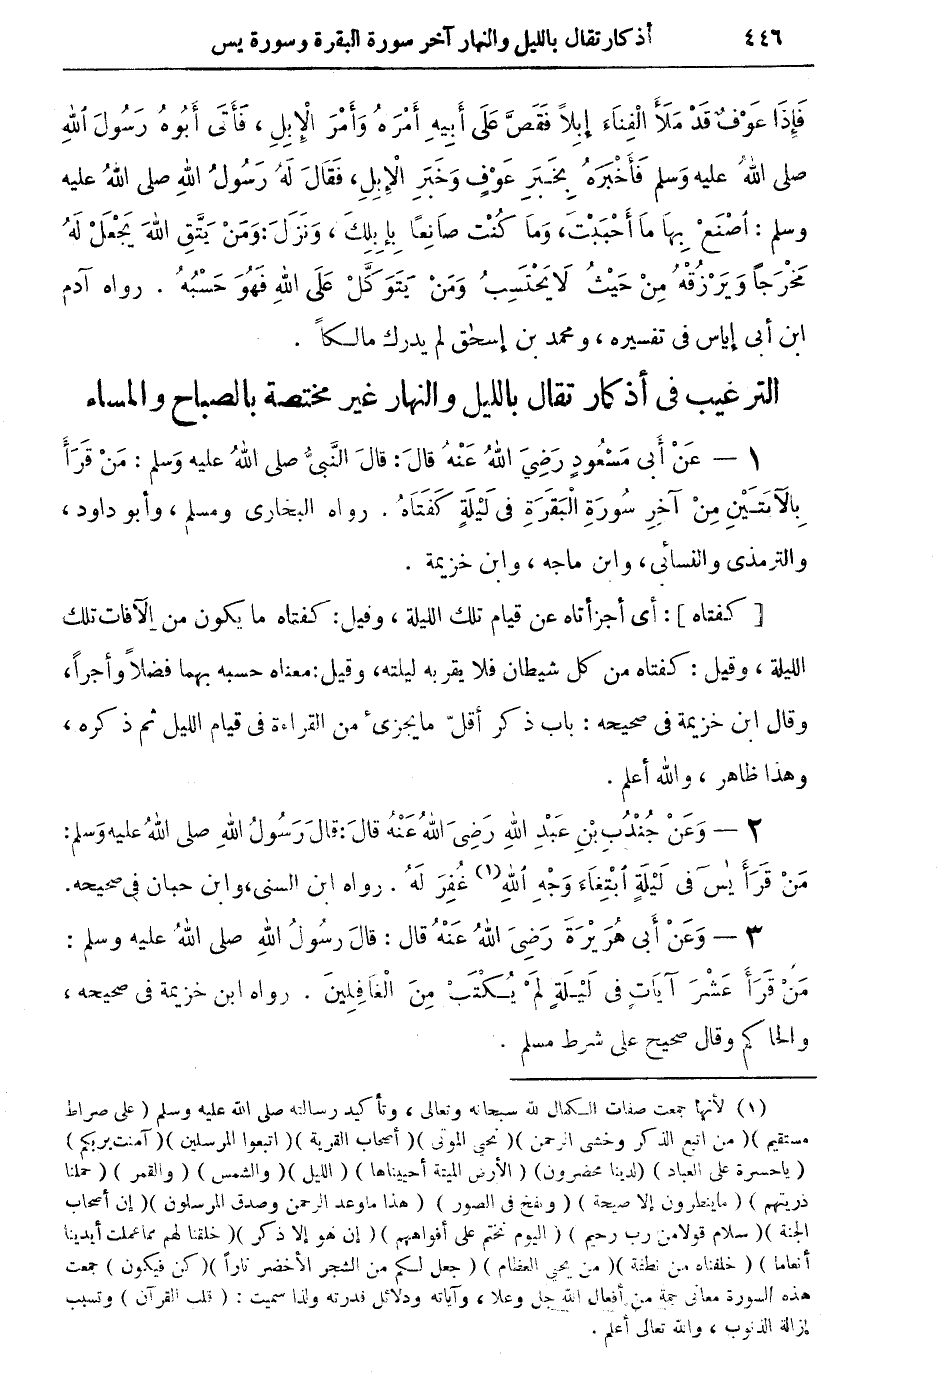 ٤٤٦ أذكار تقال بالليل والنهار آخر سورة البقرة وسورة يس
فَإِذَا عَوْفٌ قَدْ مَلَأَ الْفِنَاءَ إِبِلاً فَقَصَّ عَلَى أَبِيهِ أَمْرَهُ وَأَمْرَ الْإِبِلِ ، فَأَتَى أَبُوهُ رَسُولَ اللهِ
صلى اللهُ عليه وَسلم فَأَخْبَرَهُ بِخَبَرِ عَوْفٍ وَخَبَرِ الْإِبِلِ، فَقَالَ لَهُ رَسُولُ اللهِ صلى اللهُ عليه
وسلم : اُصْنَعْ بِهَا مَا أَحْبَبْتَ، وَمَا كُنْتَ صَانِعًا بِإِبِلِكَ ، وَنَزَلَ: وَمَنْ يَتَّقِ اللهَ يَجْعَلْ لَهُ
مَخْرَجاً وَيَرْزُقْهُ مِنْ حَيْثُ لَا يَحْتَسِبُ وَمَنْ يَتَوَكَّلْ عَلَى اللهِ فَهُوَ حَسْبُهُ . رواه آدم
ابن أبى إياس فى تفسيره ، ومحمد بن إسحٰق لم يدرك مالكاً .
الترغيب فى أذكار تقال بالليل والنهار غير مختصة بالصباح والمساء
١ — عَنْ أَبى مَسْعُودٍ رَضِيَ اللهُ عَنْهُ قالَ: قالَ النَّبىُّ صلى اللهُ عليه وَسلم : مَنْ قَرَأَ
بِالآيَتَيْنِ مِنْ آخِرِ سُورَةِ الْبَقَرَةِ فى لَيْلَةٍ كَفَتَاهُ . رواه البخارى ومسلم ، وأبو داود ،
والترمذى والنسائى، وابن ماجه ، وابن خزيمة .
[ كفتاه ] : أى أجزأتاه عن قيام تلك الليلة ، وقيل: كفتاه ما يكون من الآفات تلك
الليلة ، وقيل : كفتاه من كل شيطان فلا يقربه ليلته، وقيل: معناه حسبه بهما فضلاً وأجراً،
وقال ابن خزيمة فى صحيحه : باب ذكر أقلّ ما يجزىء من القراءة فى قيام الليل ثم ذكره ،
وهذا ظاهر ، والله أعلم .
٢ — وَعَنْ جُنْدُبِ بْنِ عَبْدِ اللهِ رَضِيَ اللهُ عَنْهُ قالَ: قالَ رَسُولُ اللهِ صلى اللهُ عليه وَسلم:
مَنْ قَرَأَ يٰسٓ فى لَيْلَةٍ اُبْتِغَاءَ وَجْهِ اللهِ(١) غُفِرَ لَهُ . رواه ابن السنى، وابن حبان فى صحيحه.
٣ — وَعَنْ أَبى هُرَيْرَةَ رَضِيَ اللهُ عَنْهُ قال : قالَ رسُولُ اللهِ صلى اللهُ عليه وسلم :
مَنْ قَرَأَ عَشْرَ آيَاتٍ فى لَيْلَةٍ لَمْ يُكْتَبْ مِنَ الْغَافِلِينَ . رواه ابن خزيمة فى صحيحه ،
والحاكم وقال صحيح على شرط مسلم .
(١) لأنها جمعت صفات الكمال لله سبحانه وتعالى ، وتأكيد رسالته صلى الله عليه وسلم ( على صراط
مستقيم )( من اتبع الذكر وخشى الرحمن )( نحيى الموتى )( أصحاب القرية )( اتبعوا المرسلين )( آمنت بربكم )
( ياحسرة على العباد ) (لدينا محضرون) ( الأرض الميتة أحييناها ) ( الليل )( والشمس ) ( والقمر ) ( حملنا
ذريتهم ) ( ماينظرون إلا صيحة ) ( ونفخ فى الصور ) ( هذا ماوعد الرحمن وصدق المرسلون )( إن أصحاب
الجنة )( سلام قولا من رب رحيم ) ( اليوم نختم على أفواههم ) ( إن هو إلا ذكر )( خلقنا لهم مما عملت أيدينا
أنعاما ) ( خلقناه من نطفة )( من يحيى العظام ) ( جعل لكم من الشجر الأخضر ناراً )( كن فيكون ) جمعت
هذه السورة معانى جمة من أفعال الله جل وعلا ، وآياته ودلائل قدرته ولذا سميت : ( قلب القرآن ) وتسبب
إزالة الذنوب ، والله تعالى أعلم .